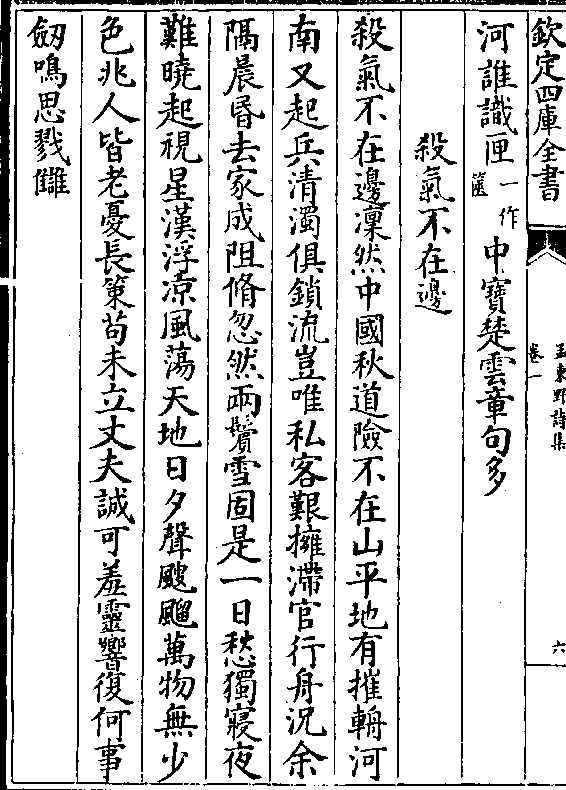 欽定四庫全書
孟東野詩集
卷一
六
河誰識匣一作篋中寶楚雲章句多
殺氣不在邊
殺氣不在邊凜然中國秋道險不在山平地有摧輈河
南又起兵清濁俱鎖流豈唯私客艱擁滯官行舟況余
隔晨昏去家成阻脩忽然兩鬢雪固是一日愁獨寢夜
難曉起視星漢浮凉風蕩天地日夕聲颼飀萬物無少
色兆人皆老憂長策苟未立丈夫誠可羞靈響復何事
劒鳴思戮讎